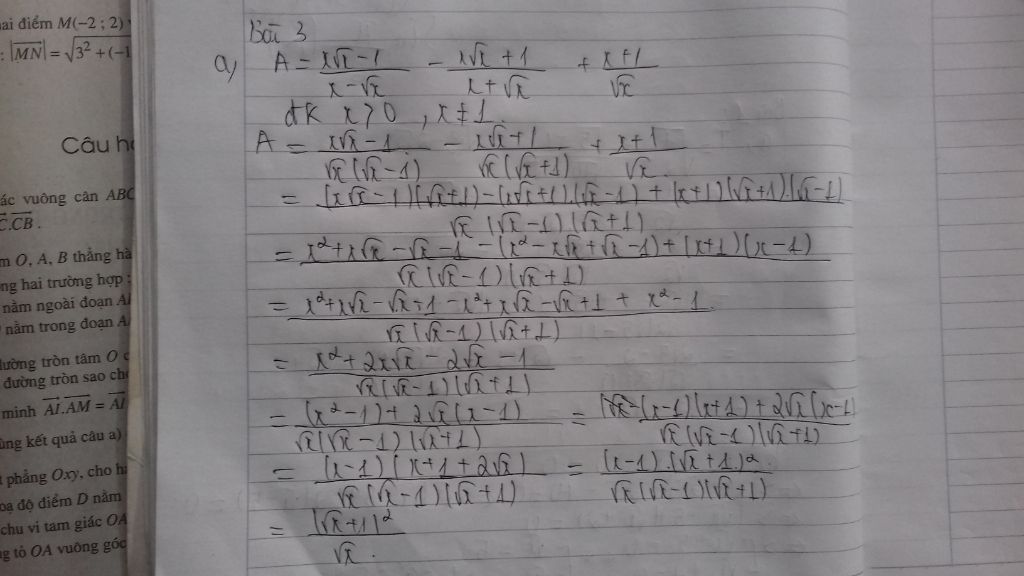 ai điểm M(-2 ; 2)
: |MN| = √3² + (-1
Câu h
ác vuông cân ABC
C.CB .
m O, A, B thẳng hà
ng hai trường hợp :
nằm ngoài đoạn A
nằm trong đoạn A
đường tròn tâm O
đường tròn sao ch
minh AI.AM = AI
ùng kết quả câu a)
t phẳng Oxy, cho h
oạ độ điểm D nằm
chu vi tam giác OA
ng tỏ OA vuông góc
Bài 3
a) A = (x√x - 1)/(x - √x) - (x√x + 1)/(x + √x) + (x+1)/√x
đk x > 0 , x ≠ 1.
A = (x√x - 1)/(√x(√x - 1)) - (x√x + 1)/(√x(√x + 1)) + (x+1)/√x
= ((x√x - 1)(√x + 1) - (x√x + 1).(√x - 1) + (x+1)(√x + 1).(√x - 1))/(√x (√x - 1)(√x + 1))
= (x² + x√x - √x - 1 - (x² - x√x + √x - 1) + (x+1)(x-1))/(√x(√x - 1)(√x + 1))
= (x² + x√x - √x - 1 - x² + x√x - √x + 1 + x² - 1)/(√x(√x - 1)(√x + 1))
= (x² + 2x√x - 2√x - 1)/(√x(√x - 1)(√x + 1))
= ((x² - 1) + 2√x(x - 1))/(√x(√x - 1)(√x + 1)) = ((x-1)(x+1) + 2√x(x-1)/(√x(√x - 1)(√x + 1))
= (x-1)(x+1+2√x)/(√x(√x - 1)(√x + 1)) = (x-1).(√x + 1)²/(√x(√x - 1)(√x + 1))
= (√x + 1)²/√x .